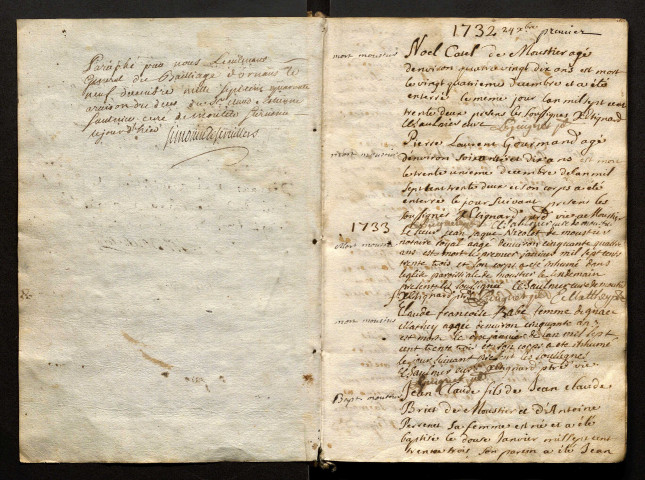 Paraphé par nous Lieutenant
General du Bailliage d'ornans le
neuf decembre mille sept cent quarante
a raison du deces du Sr claude Etienne
curé de moutier survenu
cejourd'hier
1732 24 xbre premier
mort moustier
Noel Cuel de Moustier agé
denviron quatre vingt dix ans est mort
le vingt quatrieme decembre et a eté
enterré le meme jour lan mil sept cent
trente deux presens les soussignes P Etignard
CSaulnier curé
Pierre Laurent Gourmand agé
denviron soixante et dix ans est mort
le trente unieme decembre de lan mil
sept cent trente deux et son corps a eté
enterré le jour suivant presens les
soussignés P Etignard ptre vic a Moustier
1733
Mort moustier
Le sieur jean jaque Nicolet de moustier
notaire royal aagé denviron cinquante quatre
ans est mort le premier janvier mil sept cent
trente trois et son corps a eté inhumé dans
leglise parroissiale de moustier le lendemain
presens les soussignés CSaulnier curé de moustier
P Etignard
mort moustier
Claude francoise femme dignace
Marchey aagée denviron cinquante ans
est morte le janvier de lan mil sept
cent trente trois et son corps a eté inhumé
le jour suivant presens les soussignés
CSaulnier curé P Etignard ptre vic
Bapt moustier
Jean Claude fils de Jean claude
Briet de Moustier et d'Antoine
sa femme est né et a eté
baptisé le douze Janvier mil sept cent
trente trois son parein a été Jean